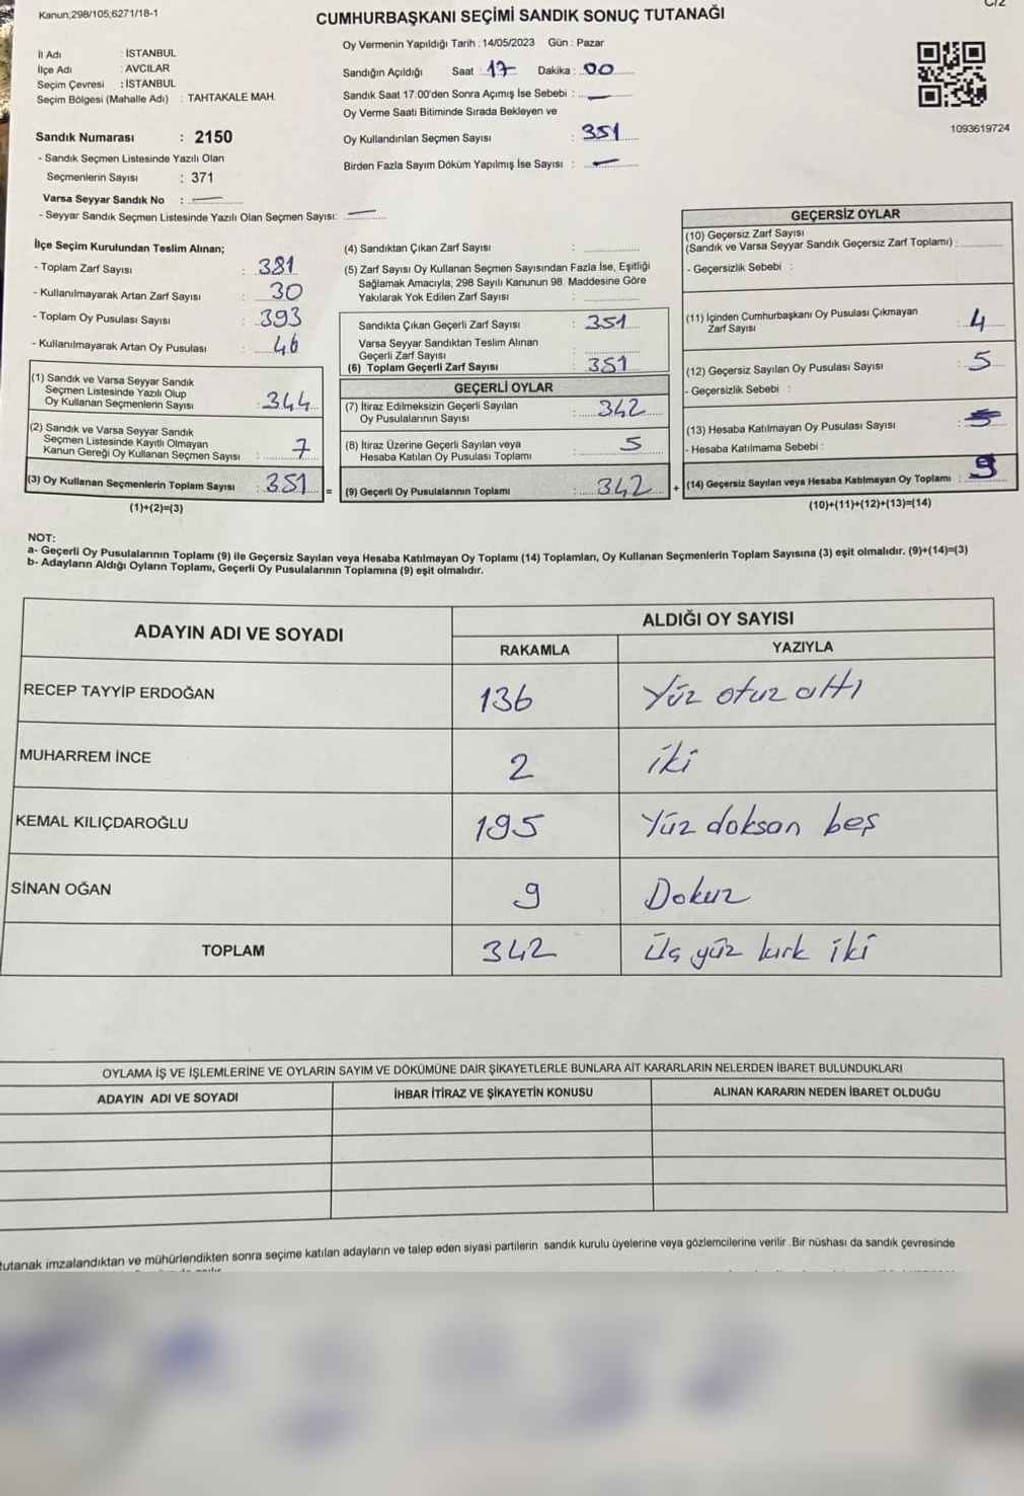 Kanun;298/105;6271/18-1
C/2
CUMHURBAŞKANI SEÇİMİ SANDIK SONUÇ TUTANAĞI
İl Adı : İSTANBUL
İlçe Adı : AVCILAR
Seçim Çevresi : İSTANBUL
Seçim Bölgesi (Mahalle Adı) : TAHTAKALE MAH.
Oy Vermenin Yapıldığı Tarih : 14/05/2023 Gün : Pazar
Sandığın Açıldığı Saat 17 Dakika : 00
Sandık Saat 17:00'den Sonra Açımış İse Sebebi : —
Oy Verme Saati Bitiminde Sırada Bekleyen ve
Oy Kullandırılan Seçmen Sayısı : 351
Birden Fazla Sayım Döküm Yapılmış İse Sayısı : —
1093619724
Sandık Numarası : 2150
- Sandık Seçmen Listesinde Yazılı Olan
Seçmenlerin Sayısı : 371
Varsa Seyyar Sandık No : —
- Seyyar Sandık Seçmen Listesinde Yazılı Olan Seçmen Sayısı: —
İlçe Seçim Kurulundan Teslim Alınan;
- Toplam Zarf Sayısı : 381
- Kullanılmayarak Artan Zarf Sayısı : 30
- Toplam Oy Pusulası Sayısı : 393
- Kullanılmayarak Artan Oy Pusulası : 46
(1) Sandık ve Varsa Seyyar Sandık
Seçmen Listesinde Yazılı Olup
Oy Kullanan Seçmenlerin Sayısı : 344
(2) Sandık ve Varsa Seyyar Sandık
Seçmen Listesinde Kayıtlı Olmayan
Kanun Gereği Oy Kullanan Seçmen Sayısı : 7
(3) Oy Kullanan Seçmenlerin Toplam Sayısı : 351
(1)+(2)=(3)
(4) Sandıktan Çıkan Zarf Sayısı :
(5) Zarf Sayısı Oy Kullanan Seçmen Sayısından Fazla İse, Eşitliği
Sağlamak Amacıyla; 298 Sayılı Kanunun 98. Maddesine Göre
Yakılarak Yok Edilen Zarf Sayısı :
Sandıkta Çıkan Geçerli Zarf Sayısı : 351
Varsa Seyyar Sandıktan Teslim Alınan
Geçerli Zarf Sayısı :
(6) Toplam Geçerli Zarf Sayısı : 351
GEÇERLİ OYLAR
(7) İtiraz Edilmeksizin Geçerli Sayılan
Oy Pusulalarının Sayısı : 342
(8) İtiraz Üzerine Geçerli Sayılan veya
Hesaba Katılan Oy Pusulası Toplamı : 5
= (9) Geçerli Oy Pusulalarının Toplamı : 342 +
GEÇERSİZ OYLAR
(10) Geçersiz Zarf Sayısı
(Sandık ve Varsa Seyyar Sandık Geçersiz Zarf Toplamı) :
- Geçersizlik Sebebi :
(11) İçinden Cumhurbaşkanı Oy Pusulası Çıkmayan
Zarf Sayısı : 4
(12) Geçersiz Sayılan Oy Pusulası Sayısı : 5
- Geçersizlik Sebebi :
(13) Hesaba Katılmayan Oy Pusulası Sayısı :
- Hesaba Katılmama Sebebi :
(14) Geçersiz Sayılan veya Hesaba Katılmayan Oy Toplamı : 9
(10)+(11)+(12)+(13)=(14)
NOT:
a- Geçerli Oy Pusulalarının Toplamı (9) ile Geçersiz Sayılan veya Hesaba Katılmayan Oy Toplamı (14) Toplamları, Oy Kullanan Seçmenlerin Toplam Sayısına (3) eşit olmalıdır. (9)+(14)=(3)
b- Adayların Aldığı Oyların Toplamı, Geçerli Oy Pusulalarının Toplamına (9) eşit olmalıdır.
ADAYIN ADI VE SOYADI
ALDIĞI OY SAYISI
RAKAMLA YAZIYLA
RECEP TAYYİP ERDOĞAN 136 Yüz otuz altı
MUHARREM İNCE 2 iki
KEMAL KILIÇDAROĞLU 195 Yüz doksan beş
SİNAN OĞAN 9 Dokuz
TOPLAM 342 Üç yüz kırk iki
OYLAMA İŞ VE İŞLEMLERİNE VE OYLARIN SAYIM VE DÖKÜMÜNE DAİR ŞİKAYETLERLE BUNLARA AİT KARARLARIN NELERDEN İBARET BULUNDUKLARI
ADAYIN ADI VE SOYADI İHBAR İTİRAZ VE ŞİKAYETİN KONUSU ALINAN KARARIN NEDEN İBARET OLDUĞU
tutanak imzalandıktan ve mühürlendikten sonra seçime katılan adayların ve talep eden siyasi partilerin sandık kurulu üyelerine veya gözlemcilerine verilir. Bir nüshası da sandık çevresinde